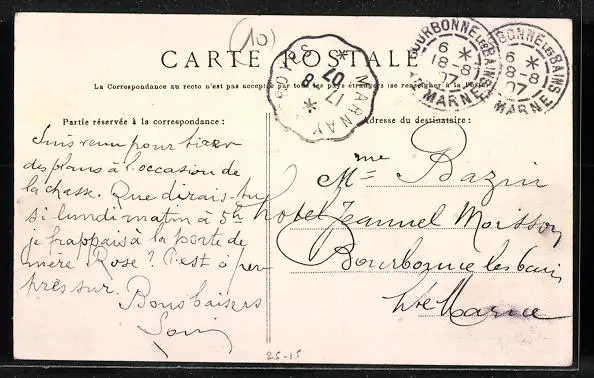 (10)
CARTE POSTALE
La Correspondance au recto n'est pas acceptée par tous les pays étrangers (se renseigner à la Poste)
Partie réservée à la correspondance :
Suis venu pour tirer
des plans à l'occasion de
la chasse. Que dirais-tu
si lundi matin à 5h
je frappais à la porte de
mère Rose? C'est à peu
près sur. Bons baisers
Adresse du destinataire :
Mme Bazin
hotel Jeannel Moisson
Bourbonne les bains
Hte Marne
MARNAY
17-8
07
BOURBONNE LES BAINS
6 *
18-8
07
MARNE
BOURBONNE LES BAINS
6 *
18-8
07
MARNE
25-15